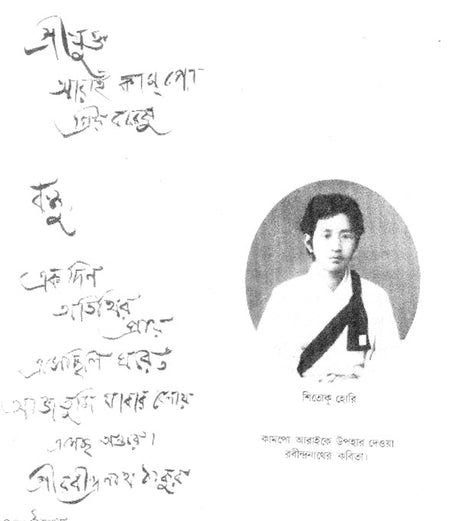 শ্রীযুক্ত
আরাই কাম্পো
প্রিয়বরেষু
বন্ধু,
একদিন
অতিথির
প্রায়
এসেছিলে ঘরে
আজ তুমি যাবার বেলায়
এসেছ অন্তরে।
শ্রীরবীন্দ্রনাথ ঠাকুর
শিতোকু হোরি
কামপো আরাইকে উপহার দেওয়া
রবীন্দ্রনাথের কবিতা।